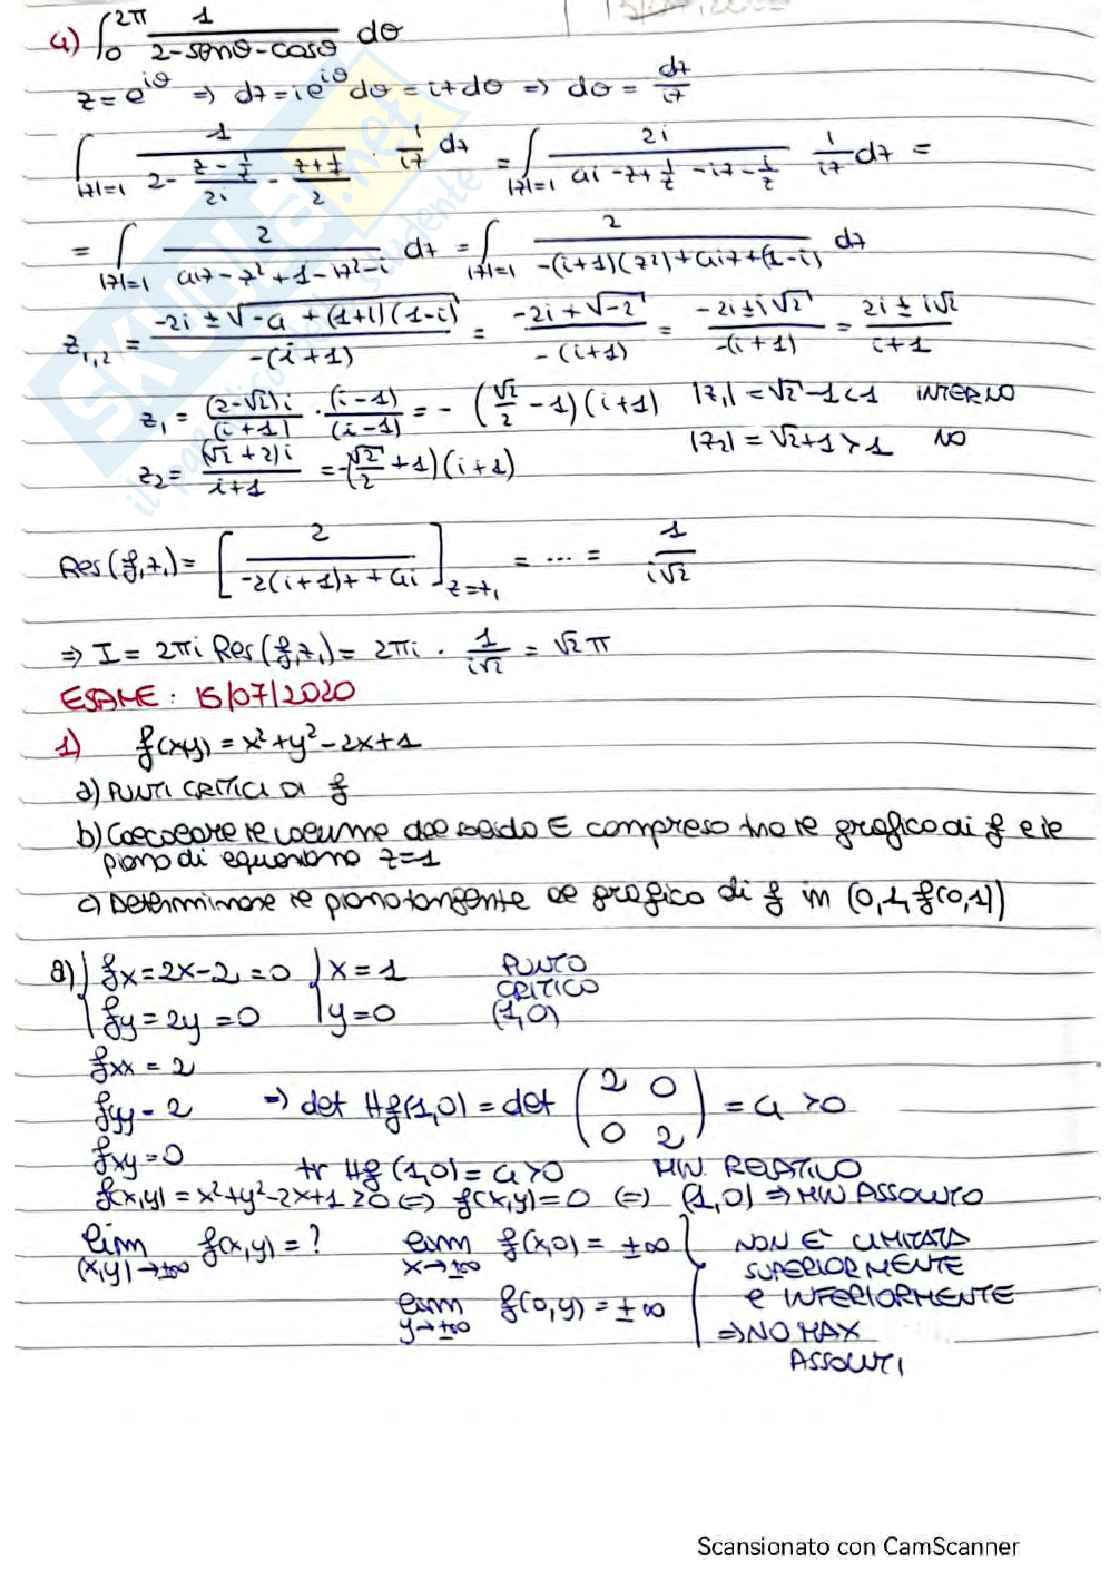 4) ∫₀^{2π} 1/(2-senθ-cosθ) dθ
z = e^{iθ} ⇒ dz = i e^{iθ} dθ = iz dθ ⇒ dθ = dz/(iz)
∫_{|z|=1} 1/(2 - (z - 1/z)/(2i) - (z + 1/z)/2) · 1/(iz) dz = ∫_{|z|=1} 2i/(4i - z + 1/z - iz - i/z) 1/(iz) dz =
= ∫_{|z|=1} 2/(4iz - z² + 1 - iz² - i) dz = ∫_{|z|=1} 2/(-(i+1)(z²) + 4iz + (1-i)) dz
z_{1,2} = (-2i ± √(-4 + (1+i)(1-i)))/(-(i+1)) = (-2i + √-2)/(-(i+1)) = (-2i ± i√2)/(-(i+1)) = (2i ± i√2)/(i+1)
z₁ = (2-√2)i/(i+1) · (i-1)/(i-1) = -(√2/2 - 1)(i+1) |z₁| = √2 - 1 < 1 INTERNO
z₂ = (√2+2)i/(i+1) = (√2/2 + 1)(i+1) |z₂| = √2 + 1 > 1 NO
Res(f, z₁) = [2/(-2(i+1)z + 4i)]_{z=z₁} = ... = 1/(i√2)
⇒ I = 2πi Res(f, z₁) = 2πi · 1/(i√2) = √2 π
ESAME: 15/07/2020
1) f(x,y) = x² + y² - 2x + 1
a) PUNTI CRITICI DI f
b) Calcolare il volume del solido E compreso tra il grafico di f e il
piano di equazione z=1
c) Determinare il piano tangente al grafico di f in (0,1,f(0,1))
a) { fx = 2x-2 = 0 { x = 1 PUNTO CRITICO
{ fy = 2y = 0 { y = 0 (1,0)
fxx = 2
fyy = 2 ⇒ det Hf(1,0) = det (2 0 0 2) = 4 > 0
fxy = 0 tr Hf(1,0) = 4 > 0 MIN. RELATIVO
f(x,y) = x²+y²-2x+1 ≥ 0 (=) f(x,y) = 0 (=) (1,0) ⇒ MIN ASSOLUTO
lim_{(x,y)→±∞} f(x,y) = ? lim_{x→±∞} f(x,0) = ±∞ NON È LIMITATA
SUPERIORMENTE
lim_{y→±∞} f(0,y) = ±∞ e INFERIORMENTE
⇒ NO MAX
ASSOLUTI
Scansionato con CamScanner
SKUOLA.net